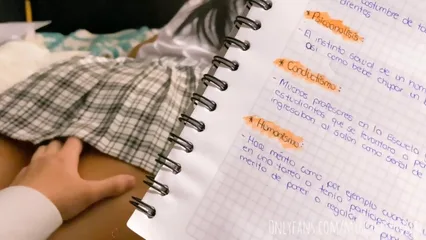 costumbre de to
dientes
* Psicoanálisis:
- El instinto sexual de un hom
Así como bebé chupar un b
* Conductismo:
- Muchos profesores en la Escuela
estudiantes que se levantara a po
ingresaban al salón como señal de
* Humanismo:
- Hago mérito como por ejemplo cuando
en una tarea o tenía participation
mérito de poner o regalar un punt
ONLYFANS.COM/